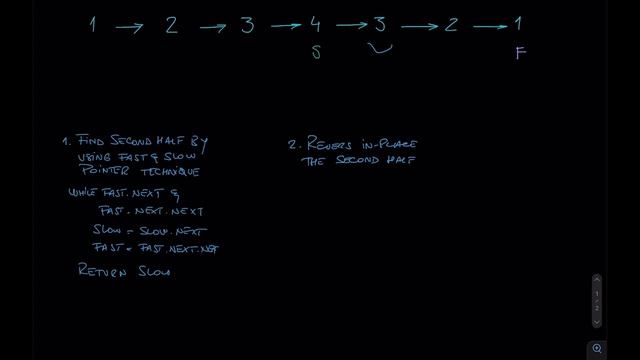 1 → 2 → 3 → 4 → 3 → 2 → 1
S F
1. FIND SECOND HALF BY
USING FAST & SLOW
POINTER TECHNIQUE
WHILE FAST.NEXT &
FAST.NEXT.NEXT
SLOW = SLOW.NEXT
FAST = FAST.NEXT.NEXT
RETURN SLOW
2. REVERS IN-PLACE
THE SECOND HALF
1
/
2